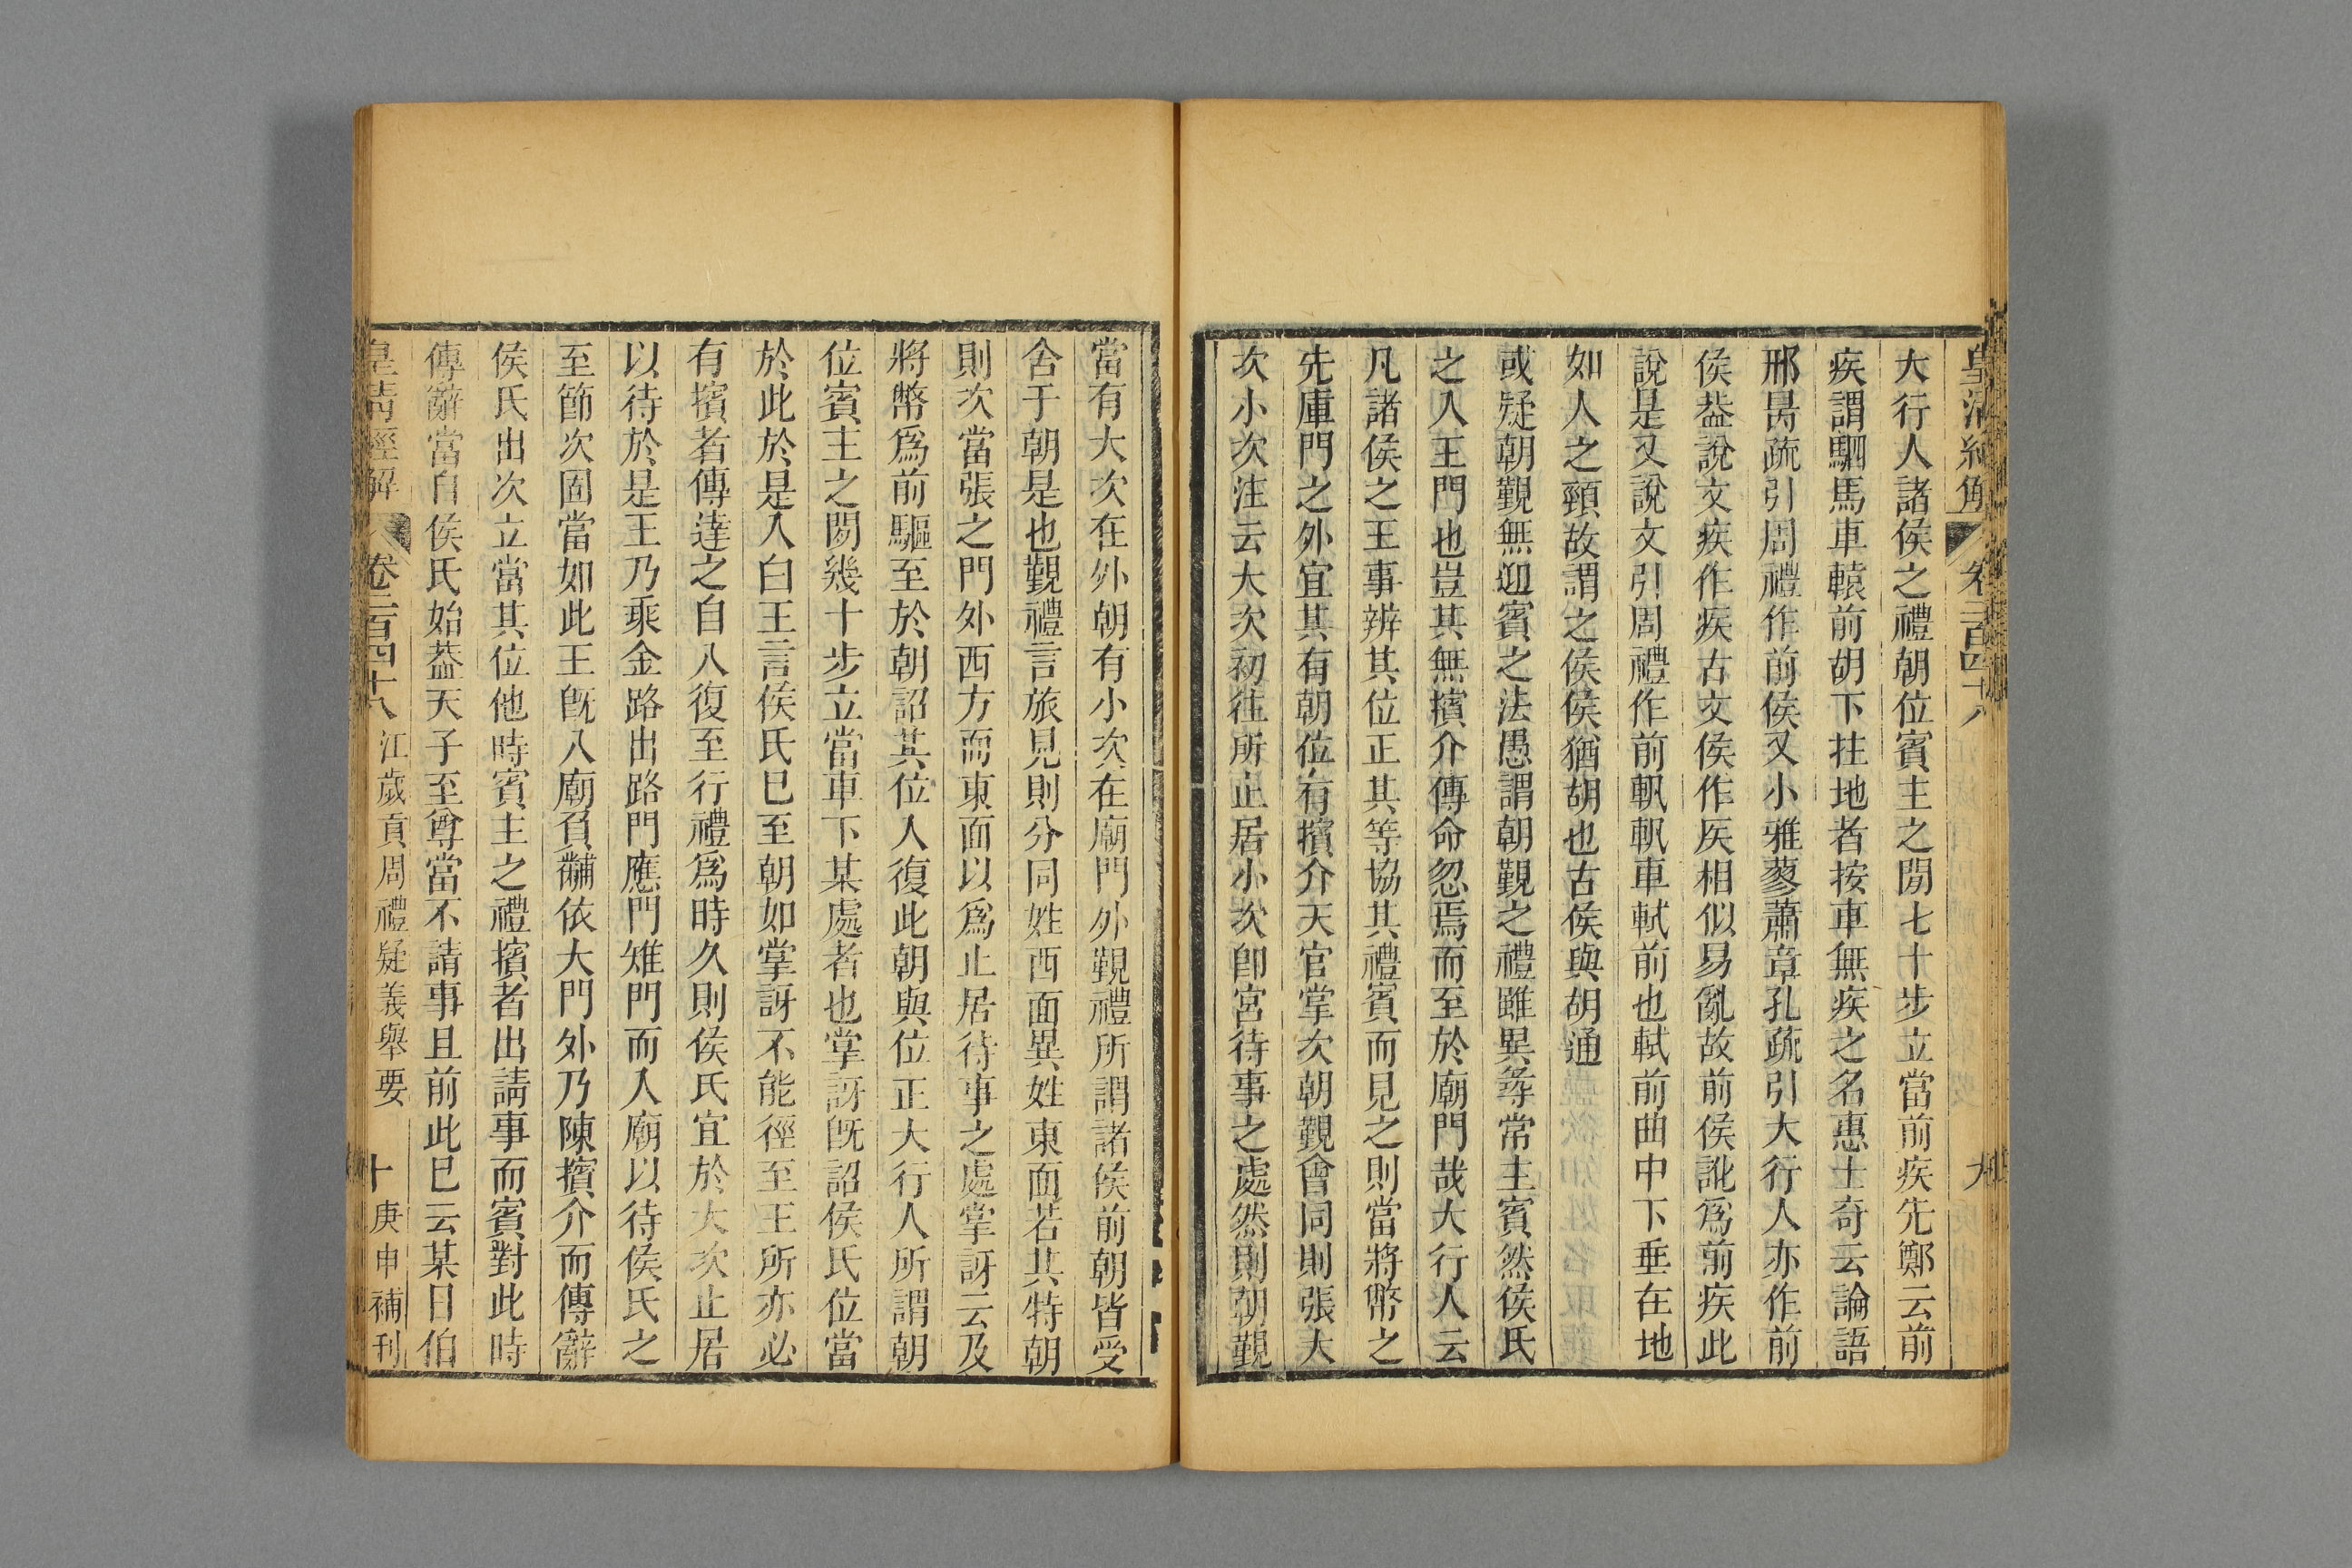 皇清經解 卷二百四十八 九
大行人諸侯之禮朝位賓主之閒七十步立當前疾先鄭云前
疾謂駟馬車轅前胡下拄地者按車無疾之名惠士奇云論語
邢昺疏引周禮作前侯又小雅蓼蕭章孔疏引大行人亦作前
侯葢說文疾作疾古文侯作矦相似易亂故前侯訛爲前疾此
說是又說文引周禮作前軓軓車軾前也軾前曲中下垂在地
如人之頸故謂之侯侯猶胡也古侯與胡通
或疑朝覲無迎賓之法愚謂朝覲之禮雖異尋常主賓然侯氏
之入王門也豈其無擯介傳命忽焉而至於廟門哉大行人云
凡諸侯之王事辨其位正其等協其禮賓而見之則當將幣之
先庫門之外宜其有朝位有擯介天官掌次朝覲會同則張大
次小次注云大次初往所止居小次卽宮待事之處然則朝覲
當有大次在外朝有小次在廟門外覲禮所謂諸侯前朝皆受
舍于朝是也覲禮言旅見則分同姓西面異姓東面若其特朝
則次當張之門外西方而東面以爲止居待事之處掌訝云及
將幣爲前驅至於朝詔其位入復此朝與位正大行人所謂朝
位賓主之閒幾十步立當車下某處者也掌訝旣詔侯氏位當
於此於是入白王言侯氏巳至朝如掌訝不能徑至王所亦必
有擯者傳達之自入復至行禮爲時久則侯氏宜於大次止居
以待於是王乃乘金路出路門應門雉門而入廟以待侯氏之
至節次固當如此王旣入廟負黼依大門外乃陳擯介而傳辭
侯氏出次立當其位他時賓主之禮擯者出請事而賓對此時
傳辭當自侯氏始葢天子至尊當不請事且前此巳云某日伯
皇清經解 卷二百四十八 江歲貢周禮疑義舉要 十 庚申補刊